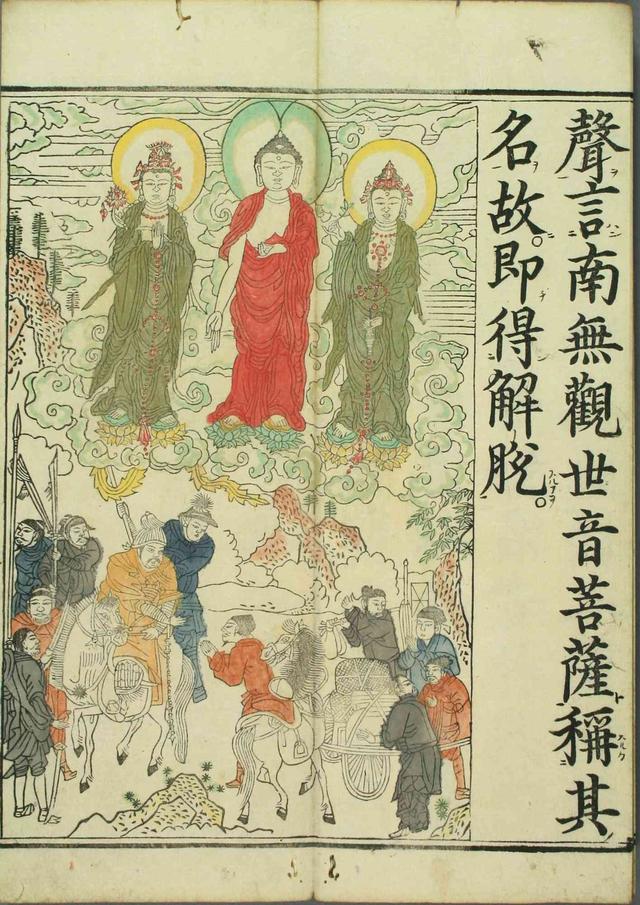 聲言南無觀世音菩薩稱其
名故即得解脫